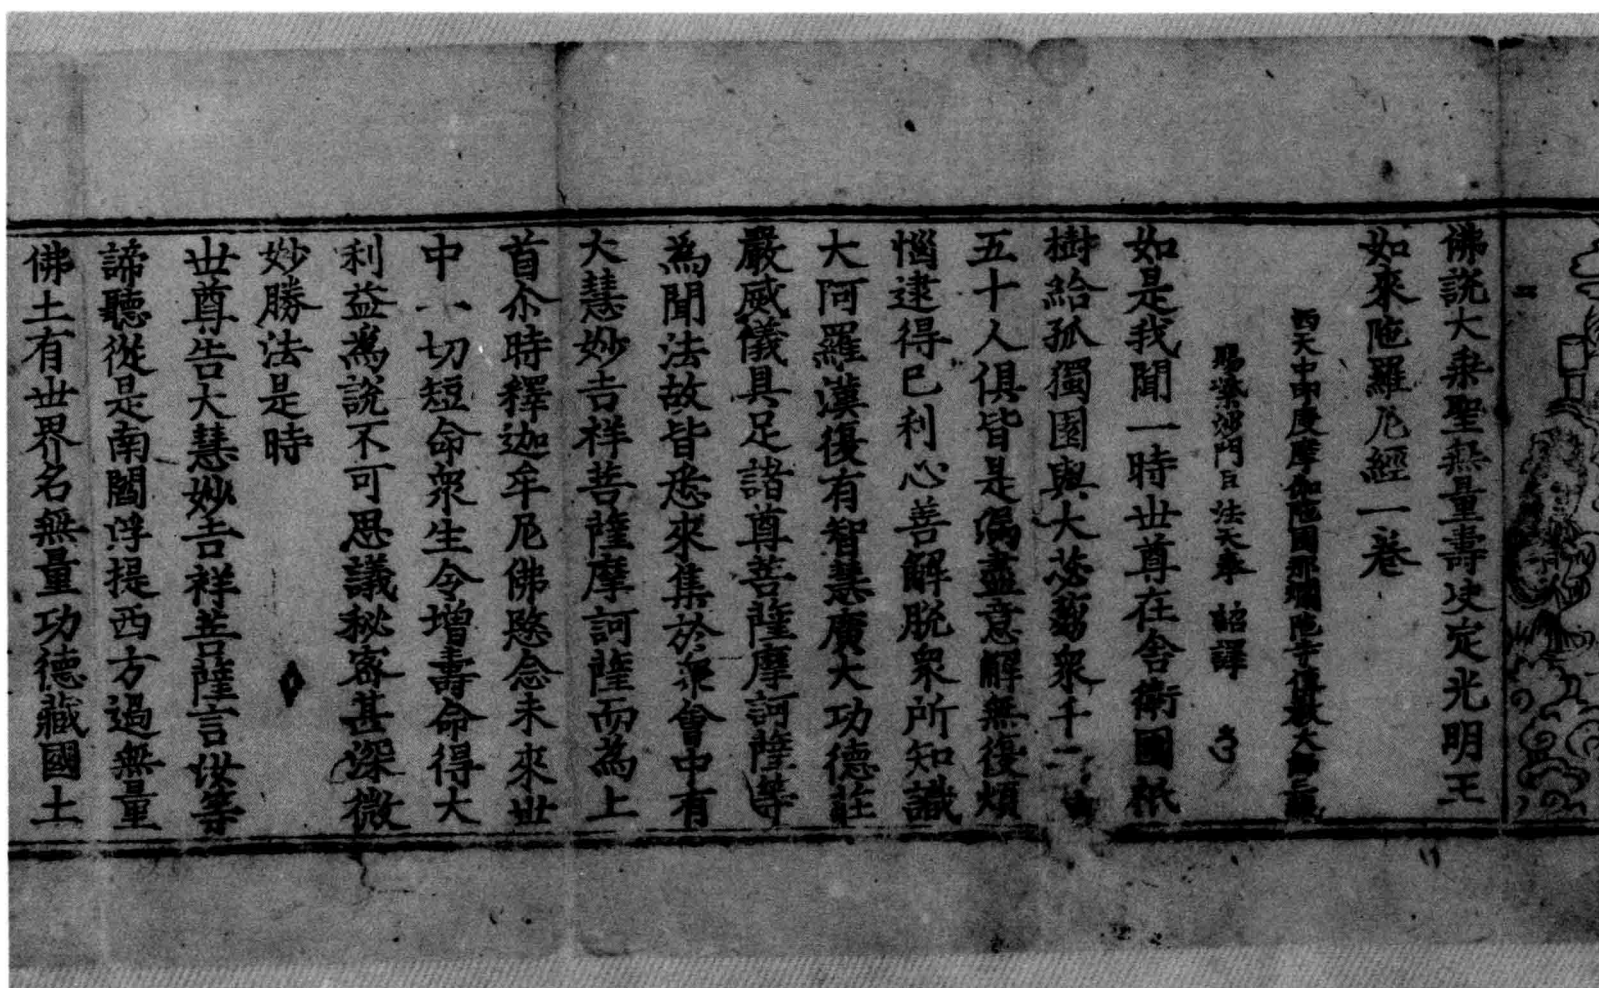 佛說大乗聖無量壽决定光明王
如來陁羅尼經一巻
西天中印度摩伽陁國那爛陁寺傳教大師三藏
賜紫沙門臣法天奉 詔譯
如是我聞一時世尊在舎衛國祇
樹給孤獨園與大苾蒭衆千二百
五十人俱皆是漏盡意解無復煩
惱逮得已利心善解脱衆所知識
大阿羅漢復有智慧廣大功德莊
嚴威儀具足諸尊菩薩摩訶薩等
為聞法故皆悉來集於衆會中有
大慧妙吉祥菩薩摩訶薩而為上
首尒時釋迦牟尼佛愍念未來世
中一切短命衆生令增壽命得大
利益為說不可思議秘密甚深微
妙勝法是時
世尊告大慧妙吉祥菩薩言汝等
諦聽從是南閻浮提西方過無量
佛土有世界名無量功德藏國土